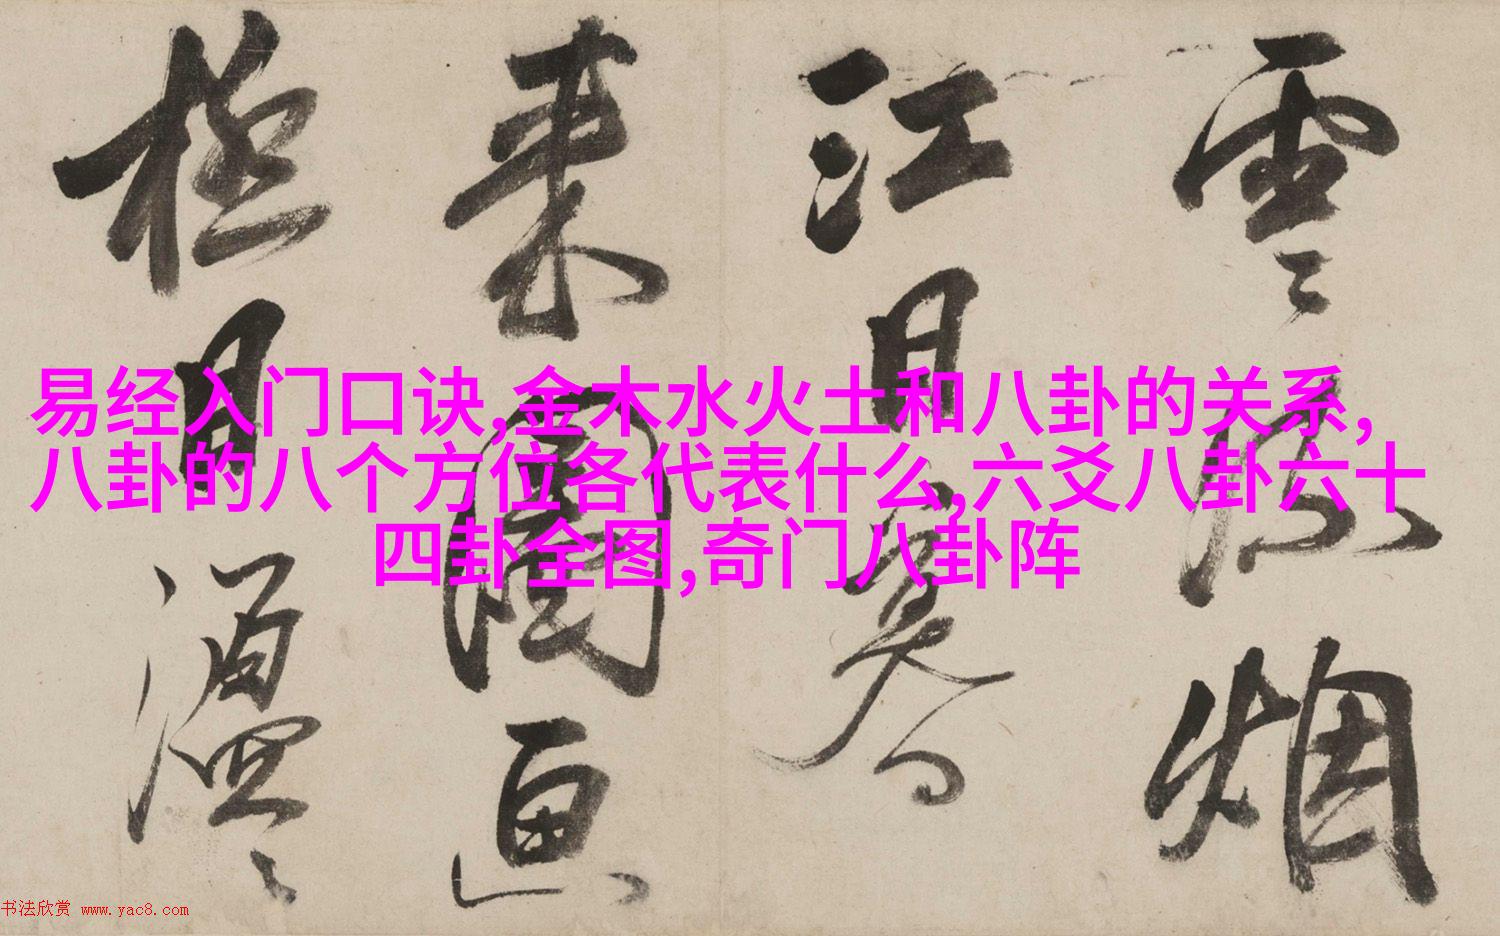 易经入门口诀,金木水火土和八卦的关系,
八卦的八个方位各代表什么,六爻八卦六十
四卦全图,奇门八卦阵
雲〻烟
江月寒
来圖画
極目
书法欣赏 www.yac8.com